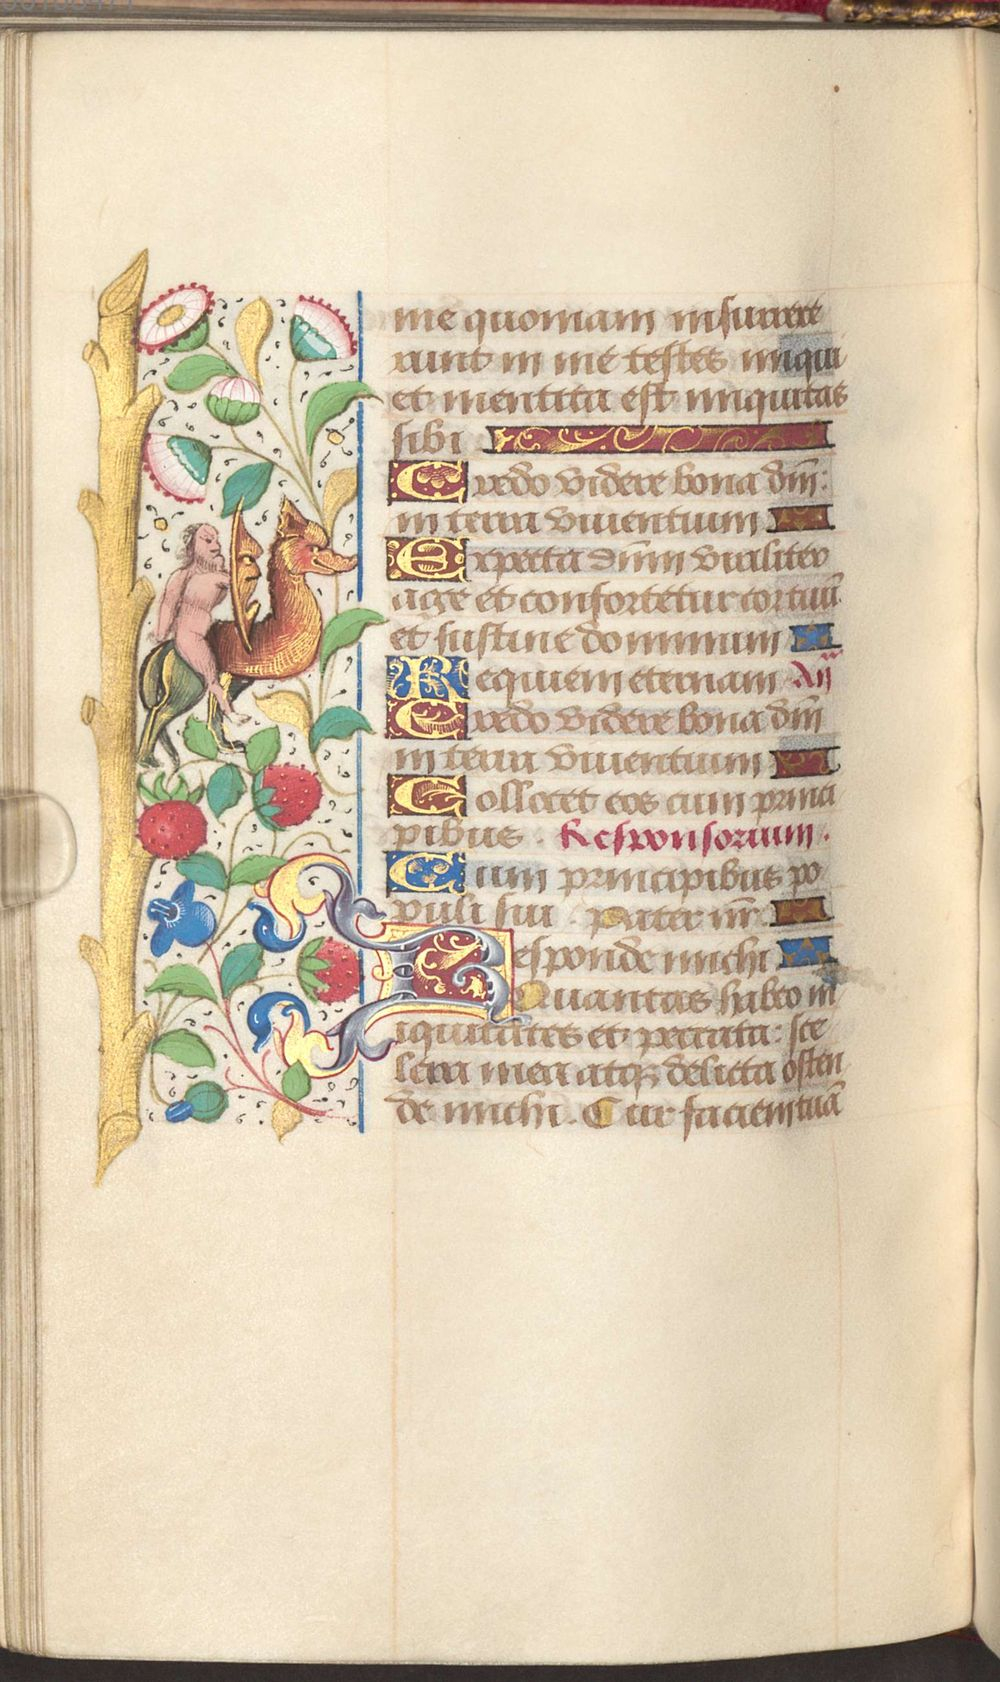 me quoniam insurrexe
runt in me testes iniqui
et mentita est iniquitas
sibi
Credo videre bona dñi:
in terra viventium
Expecta dñm viriliter
age et confortetur cor tuũ
et sustine dominum
Requiem eternam Añ
Credo videre bona dñi
in terra viventium
Collocet eos cum princi
pibus. Responsorium.
Cum principibus po
puli sui. Pater nr̃
Responde michi
Quantas habeo in
iquitates et peccata: sce
lera mea atqꝫ delicta osten
de michi. Cur faciem tuã